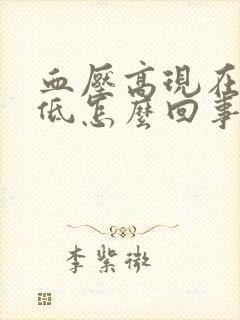 血壓高現在
低怎麼回事
李紫微